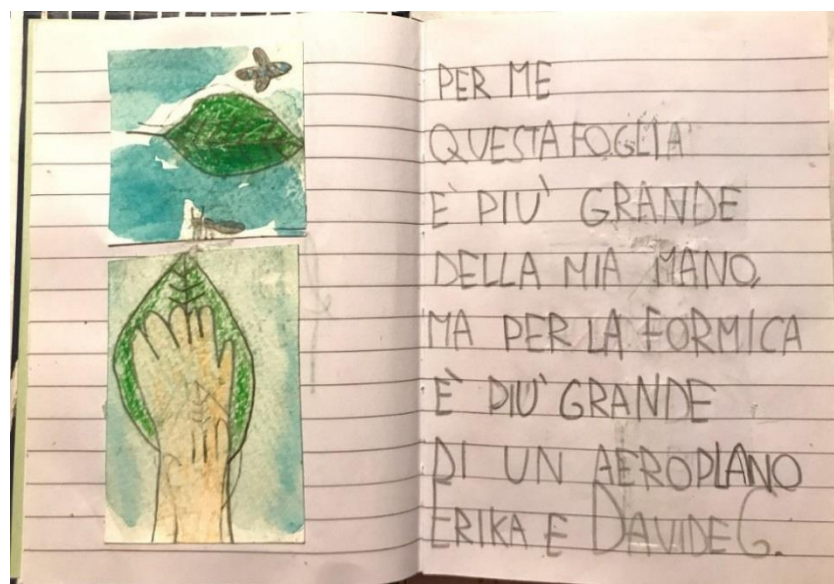 PER ME
QUESTA FOGLIA
È PIU' GRANDE
DELLA MIA MANO,
MA PER LA FORMICA
È PIU' GRANDE
DI UN AEROPLANO
ERIKA E DAVIDE G.